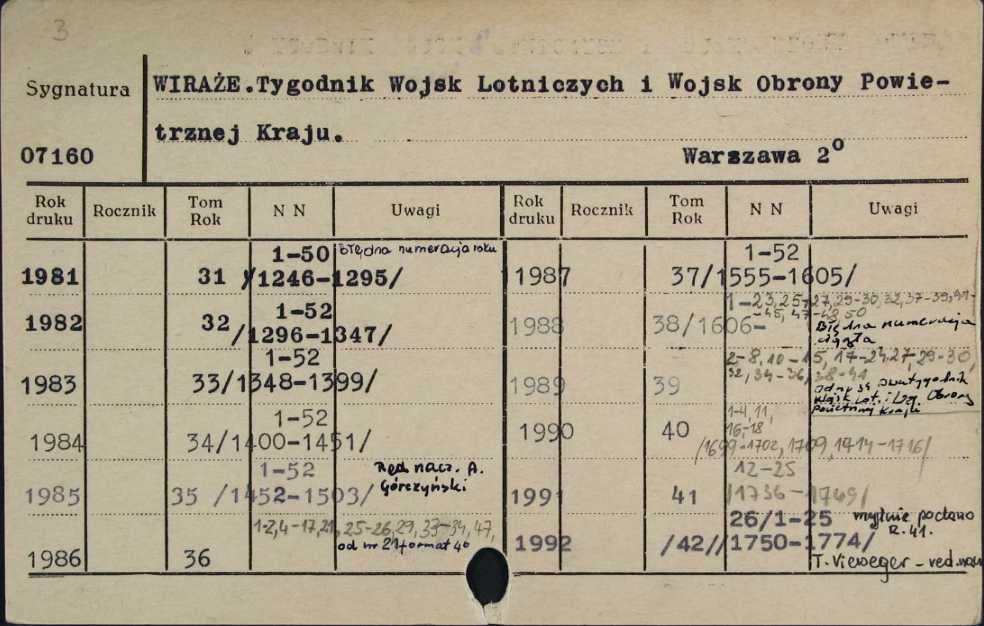 3
Sygnatura
WIRAŻE.Tygodnik Wojsk Lotniczych i Wojsk Obrony Powie-
trznej Kraju.
07160
Warszawa 2°
Rok druku Rocznik Tom Rok N N Uwagi Rok druku Rocznik Tom Rok N N Uwagi
1-50 Błędna numeracja roku
1981 31 /1246-1295/
1-52
1982 32 /1296-1347/
1-52
1983 33/1348-1399/
1-52
1984 34/1400-1451/
1-52 Red. nacz. A.
1985 35 /1452-1503/ Górczyński
1-2,4-17,21, 25-26,29,33-34,47,
od nr 21 format 4°
1986 36
1-52
1987 37/1555-1605/
1-23,25-27,29-30,32,37-39,41-
-45, 47-48, 50
1988 38/1606- Błędna numeracja
ciągła
2-8, 10-15, 17-24, 27, 29-30,
32, 34-36, 38-41
1989 39
Wojsk Lot. i Obrony
Powietrznej Kraju
1-4, 11,
16-18
1990 40
/1699-1702, 1709, 1714-1716/
12-25
1991 41 /1736-1749/
26/1-25 mylnie podano
R. 41.
1992 /42//1750-1774/
T. Vieweger - red. nacz.